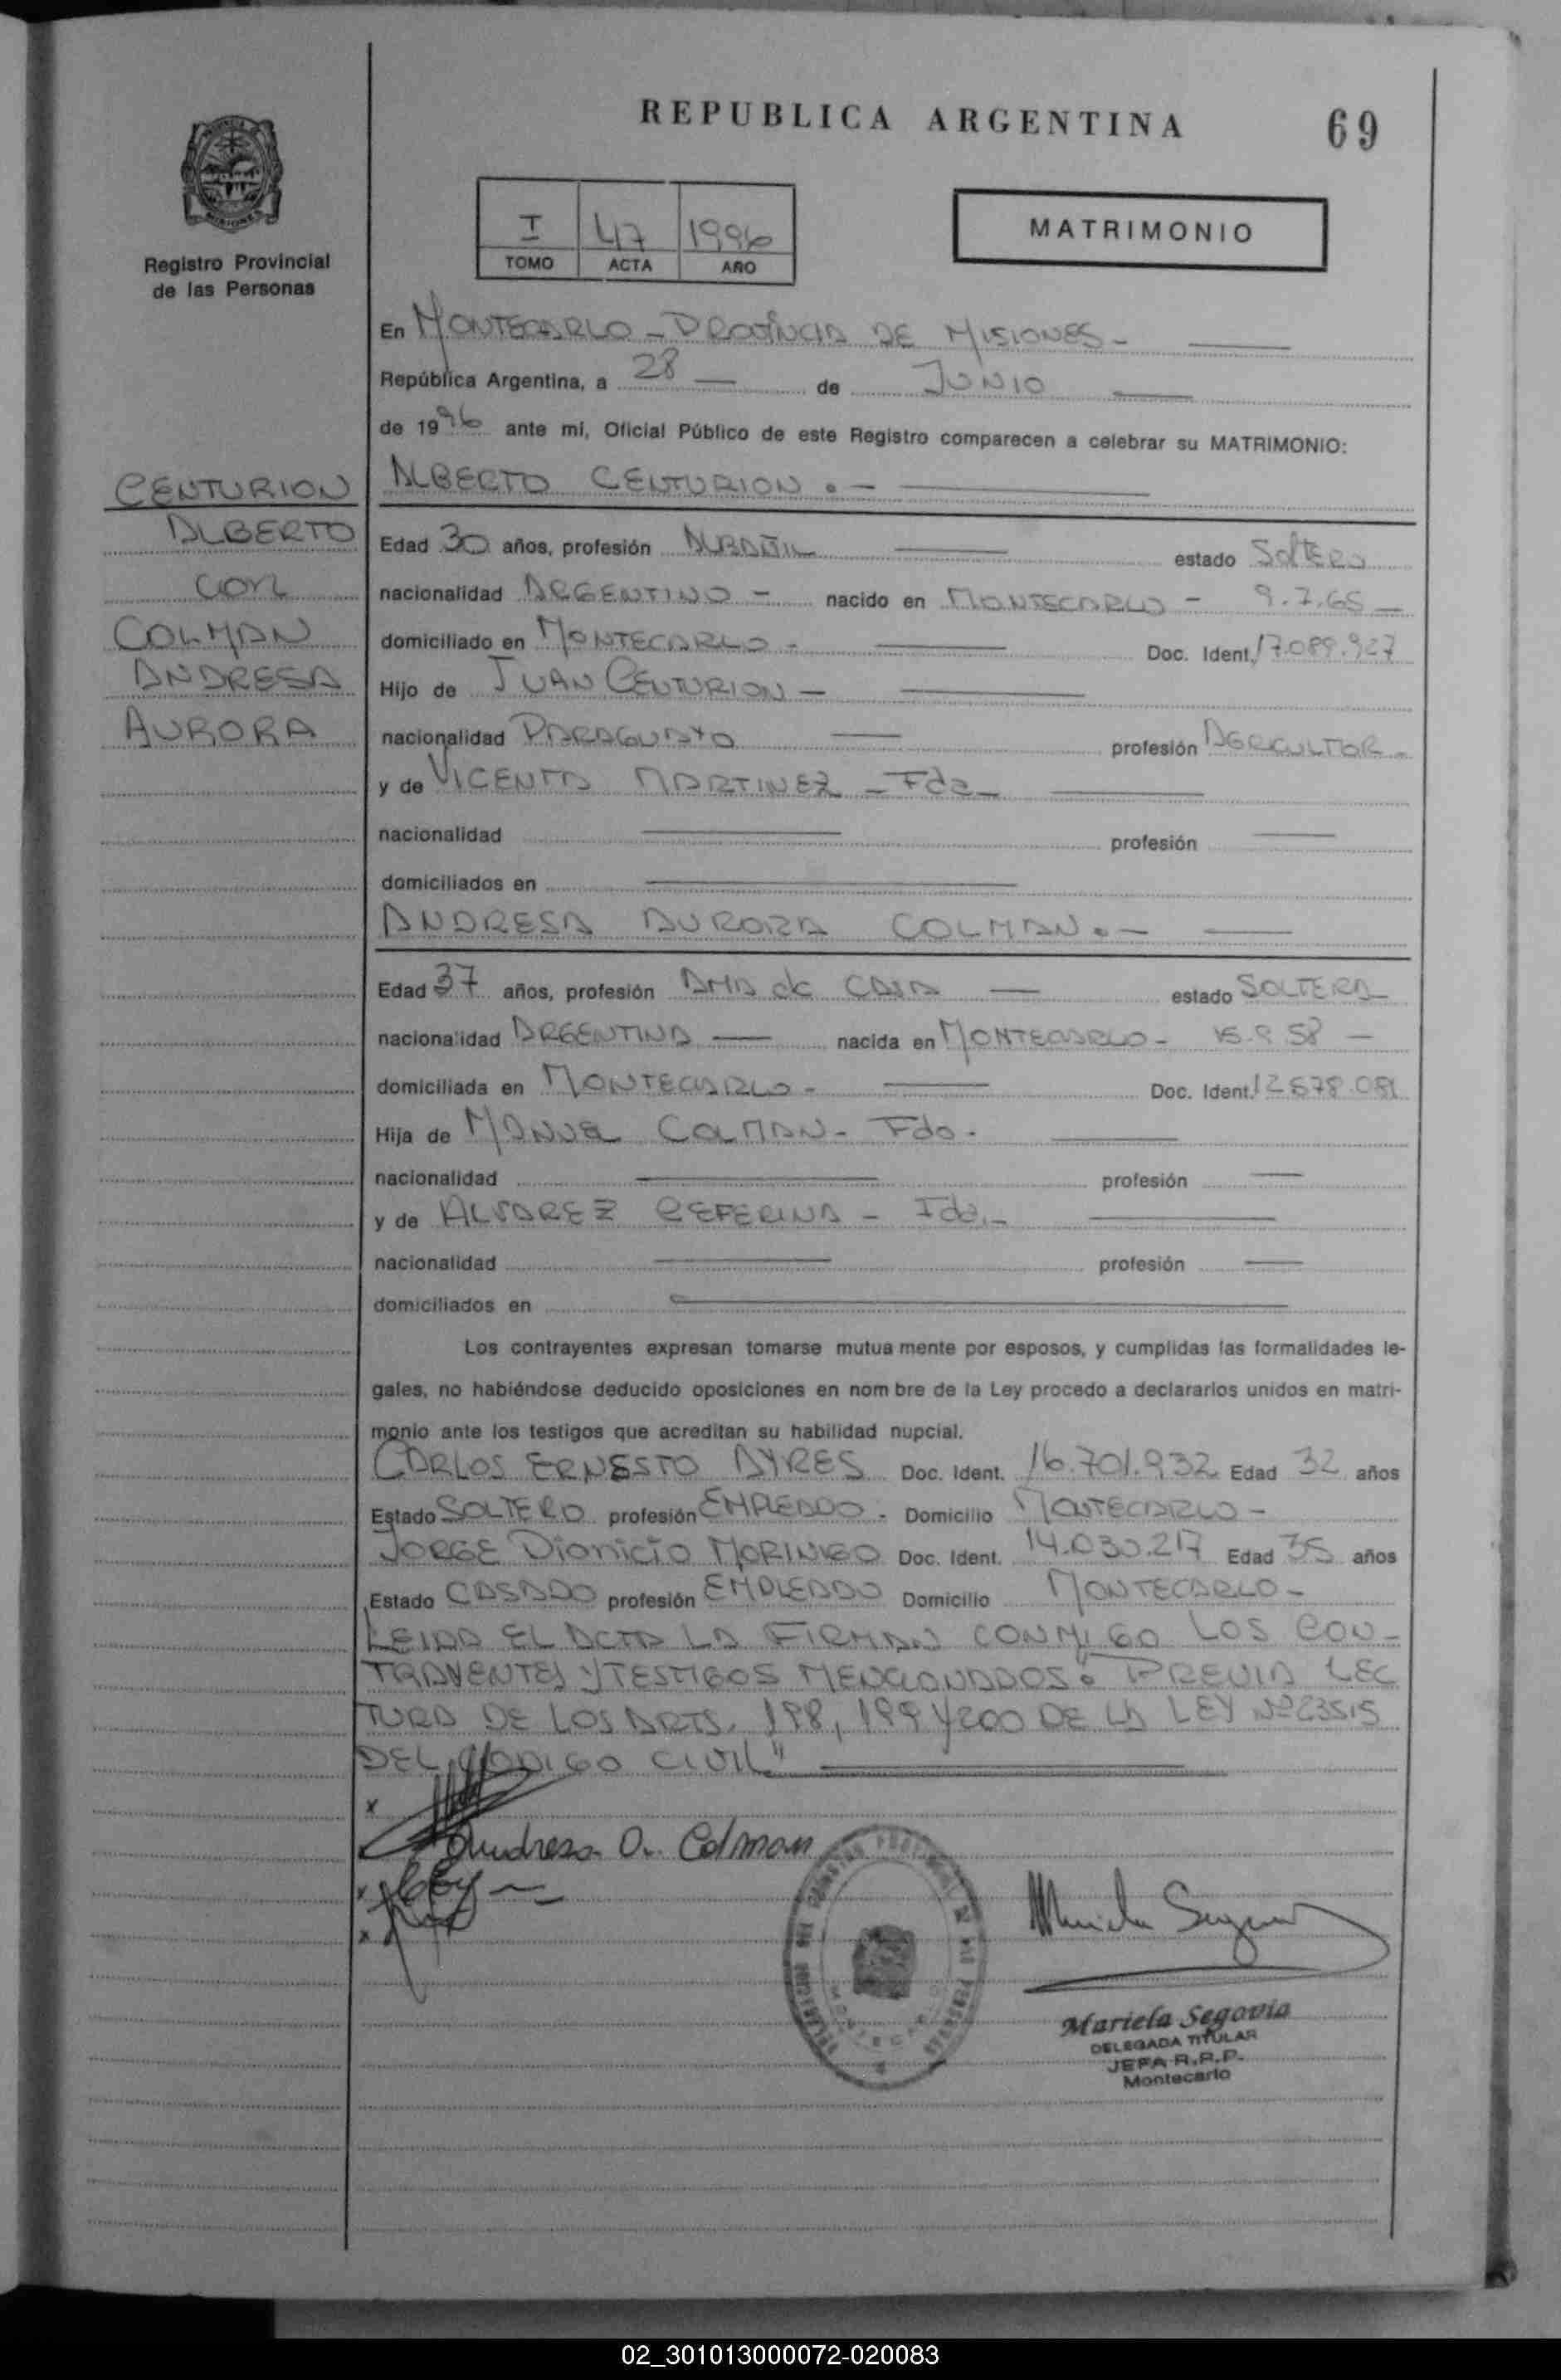 REPUBLICA ARGENTINA
69
Registro Provincial
de las Personas
I 47 1996
TOMO ACTA AÑO
MATRIMONIO
En MONTECARLO - PROVINCIA DE MISIONES -
República Argentina, a 28 — de JUNIO —
de 1996 ante mi, Oficial Público de este Registro comparecen a celebrar su MATRIMONIO:
CENTURION
ALBERTO
con
COLMAN
ANDRESA
AURORA
ALBERTO CENTURION . —
Edad 30 años, profesión ALBAÑIL — estado Soltero
nacionalidad ARGENTINO - nacido en MONTECARLO - 9.7.65 -
domiciliado en MONTECARLO - — Doc. Ident. 17.089.927
Hijo de JUAN CENTURION - —
nacionalidad PARAGUAYO — profesión AGRICULTOR -
y de VICENTA MARTINEZ - Fda - —
nacionalidad — profesión —
domiciliados en —
ANDRESA AURORA COLMAN . - —
Edad 37 años, profesión AMA de CASA — estado SOLTERA
nacionalidad ARGENTINA — nacida en MONTECARLO - 15.9.58 —
domiciliada en MONTECARLO - — Doc. Ident. 12.678.081
Hija de MANUEL COLMAN - Fdo. —
nacionalidad — profesión —
y de ALVAREZ CEFERINA - Fda. - —
nacionalidad — profesión —
domiciliados en —
Los contrayentes expresan tomarse mutua mente por esposos, y cumplidas las formalidades le-
gales, no habiéndose deducido oposiciones en nom bre de la Ley procedo a declararlos unidos en matri-
monio ante los testigos que acreditan su habilidad nupcial.
CARLOS ERNESTO AYRES Doc. Ident. 16.701.932 Edad 32 años
Estado SOLTERO profesión EMPLEADO - Domicilio MONTECARLO -
JORGE Dionicio MORINIGO Doc. Ident. 14.030.217 Edad 35 años
Estado CASADO profesión EMPLEADO Domicilio MONTECARLO -
LEIDA EL ACTA LA FIRMAN CONMIGO LOS CON-
TRAYENTES Y TESTIGOS MENCIONADOS. "PREVIA LEC
TURA DE LOS ARTS. 198, 199 Y 200 DE LA LEY Nº 23515
DEL CODIGO CIVIL"
x
Andresa A. Colman
x
x
MONTECARLO
Mariela Segovia
Mariela Segovia
DELEGADA TITULAR
JEFA R.P.P.
Montecarlo
02_301013000072-020083